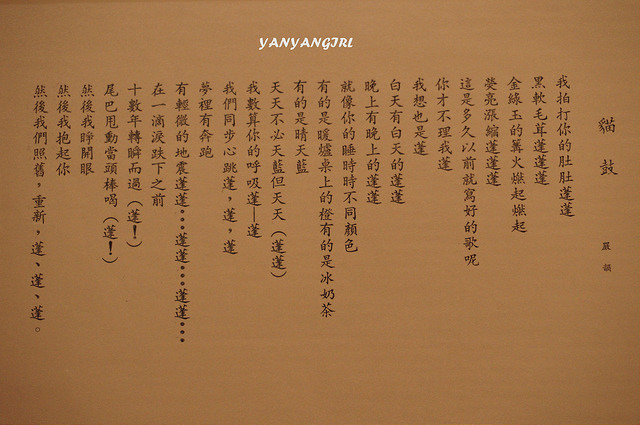 YANYANGIRL
貓鼓
嚴韻
我拍打你的肚肚蓬蓬
黑軟毛茸蓬蓬蓬
金綠玉的篝火燃起燃起
熒亮漲縮蓬蓬蓬
這是多久以前就寫好的歌呢
你才不理我蓬
我想也是蓬
白天有白天的蓬蓬
晚上有晚上的蓬蓬
就像你的睡時時不同顏色
有的是暖爐桌上的橙有的是冰奶茶
有的是晴天藍
天天不必天藍但天天（蓬蓬）
我數算你的呼吸蓬—蓬
我們同步心跳蓬，蓬，蓬
夢裡有奔跑
有輕微的地震蓬蓬…蓬蓬…蓬蓬…
在一滴淚跌下之前
十數年轉瞬而過（蓬！）
尾巴甩動當頭棒喝（蓬！）
然後我睜開眼
然後我抱起你
然後我們照舊，重新，蓬、蓬、蓬。